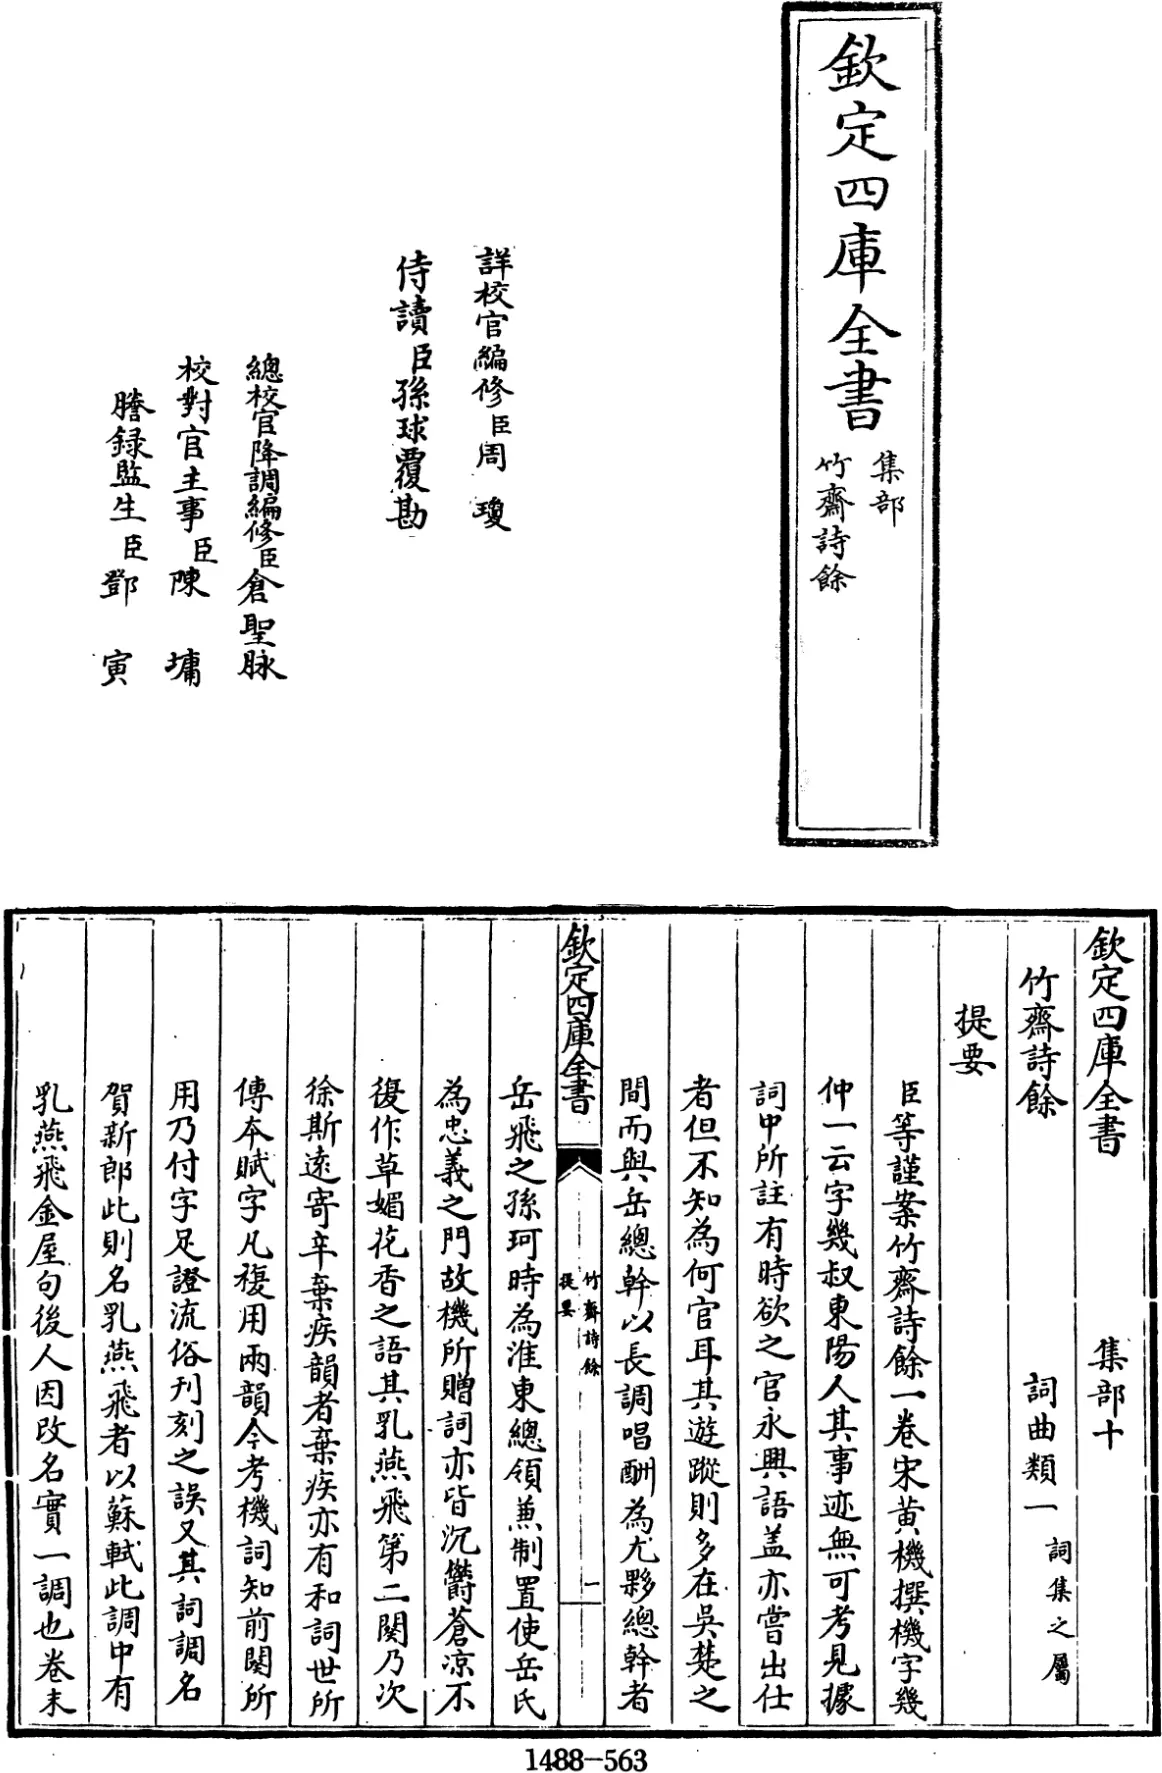 欽定四庫全書
集部
竹齋詩餘
詳校官編修臣周瓊
侍讀臣孫球覆勘
總校官降調編修臣倉聖脉
校對官主事臣陳墉
謄録監生臣鄧寅
欽定四庫全書 集部十
竹齋詩餘 詞曲類一 詞集之屬
提要
臣等謹案竹齋詩餘一卷宋黄機撰機字幾
仲一云字幾叔東陽人其事迹無可考見據
詞中所註有時欲之官永興語盖亦嘗出仕
者但不知為何官耳其遊蹤則多在吳楚之
間而與岳總幹以長調唱酬為尤夥總幹者
欽定四庫全書
竹齋詩餘
提要
一
岳飛之孫珂時為淮東總領兼制置使岳氏
為忠義之門故機所贈詞亦皆沉鬱蒼凉不
復作草媚花香之語其乳燕飛第二闋乃次
徐斯遠寄辛棄疾韻者棄疾亦有和詞世所
傳本賦字凡複用兩韻今考機詞知前闋所
用乃付字足證流俗刋刻之誤又其詞調名
賀新郎此則名乳燕飛者以蘇軾此調中有
乳燕飛金屋句後人因改名實一調也卷末
1488-563